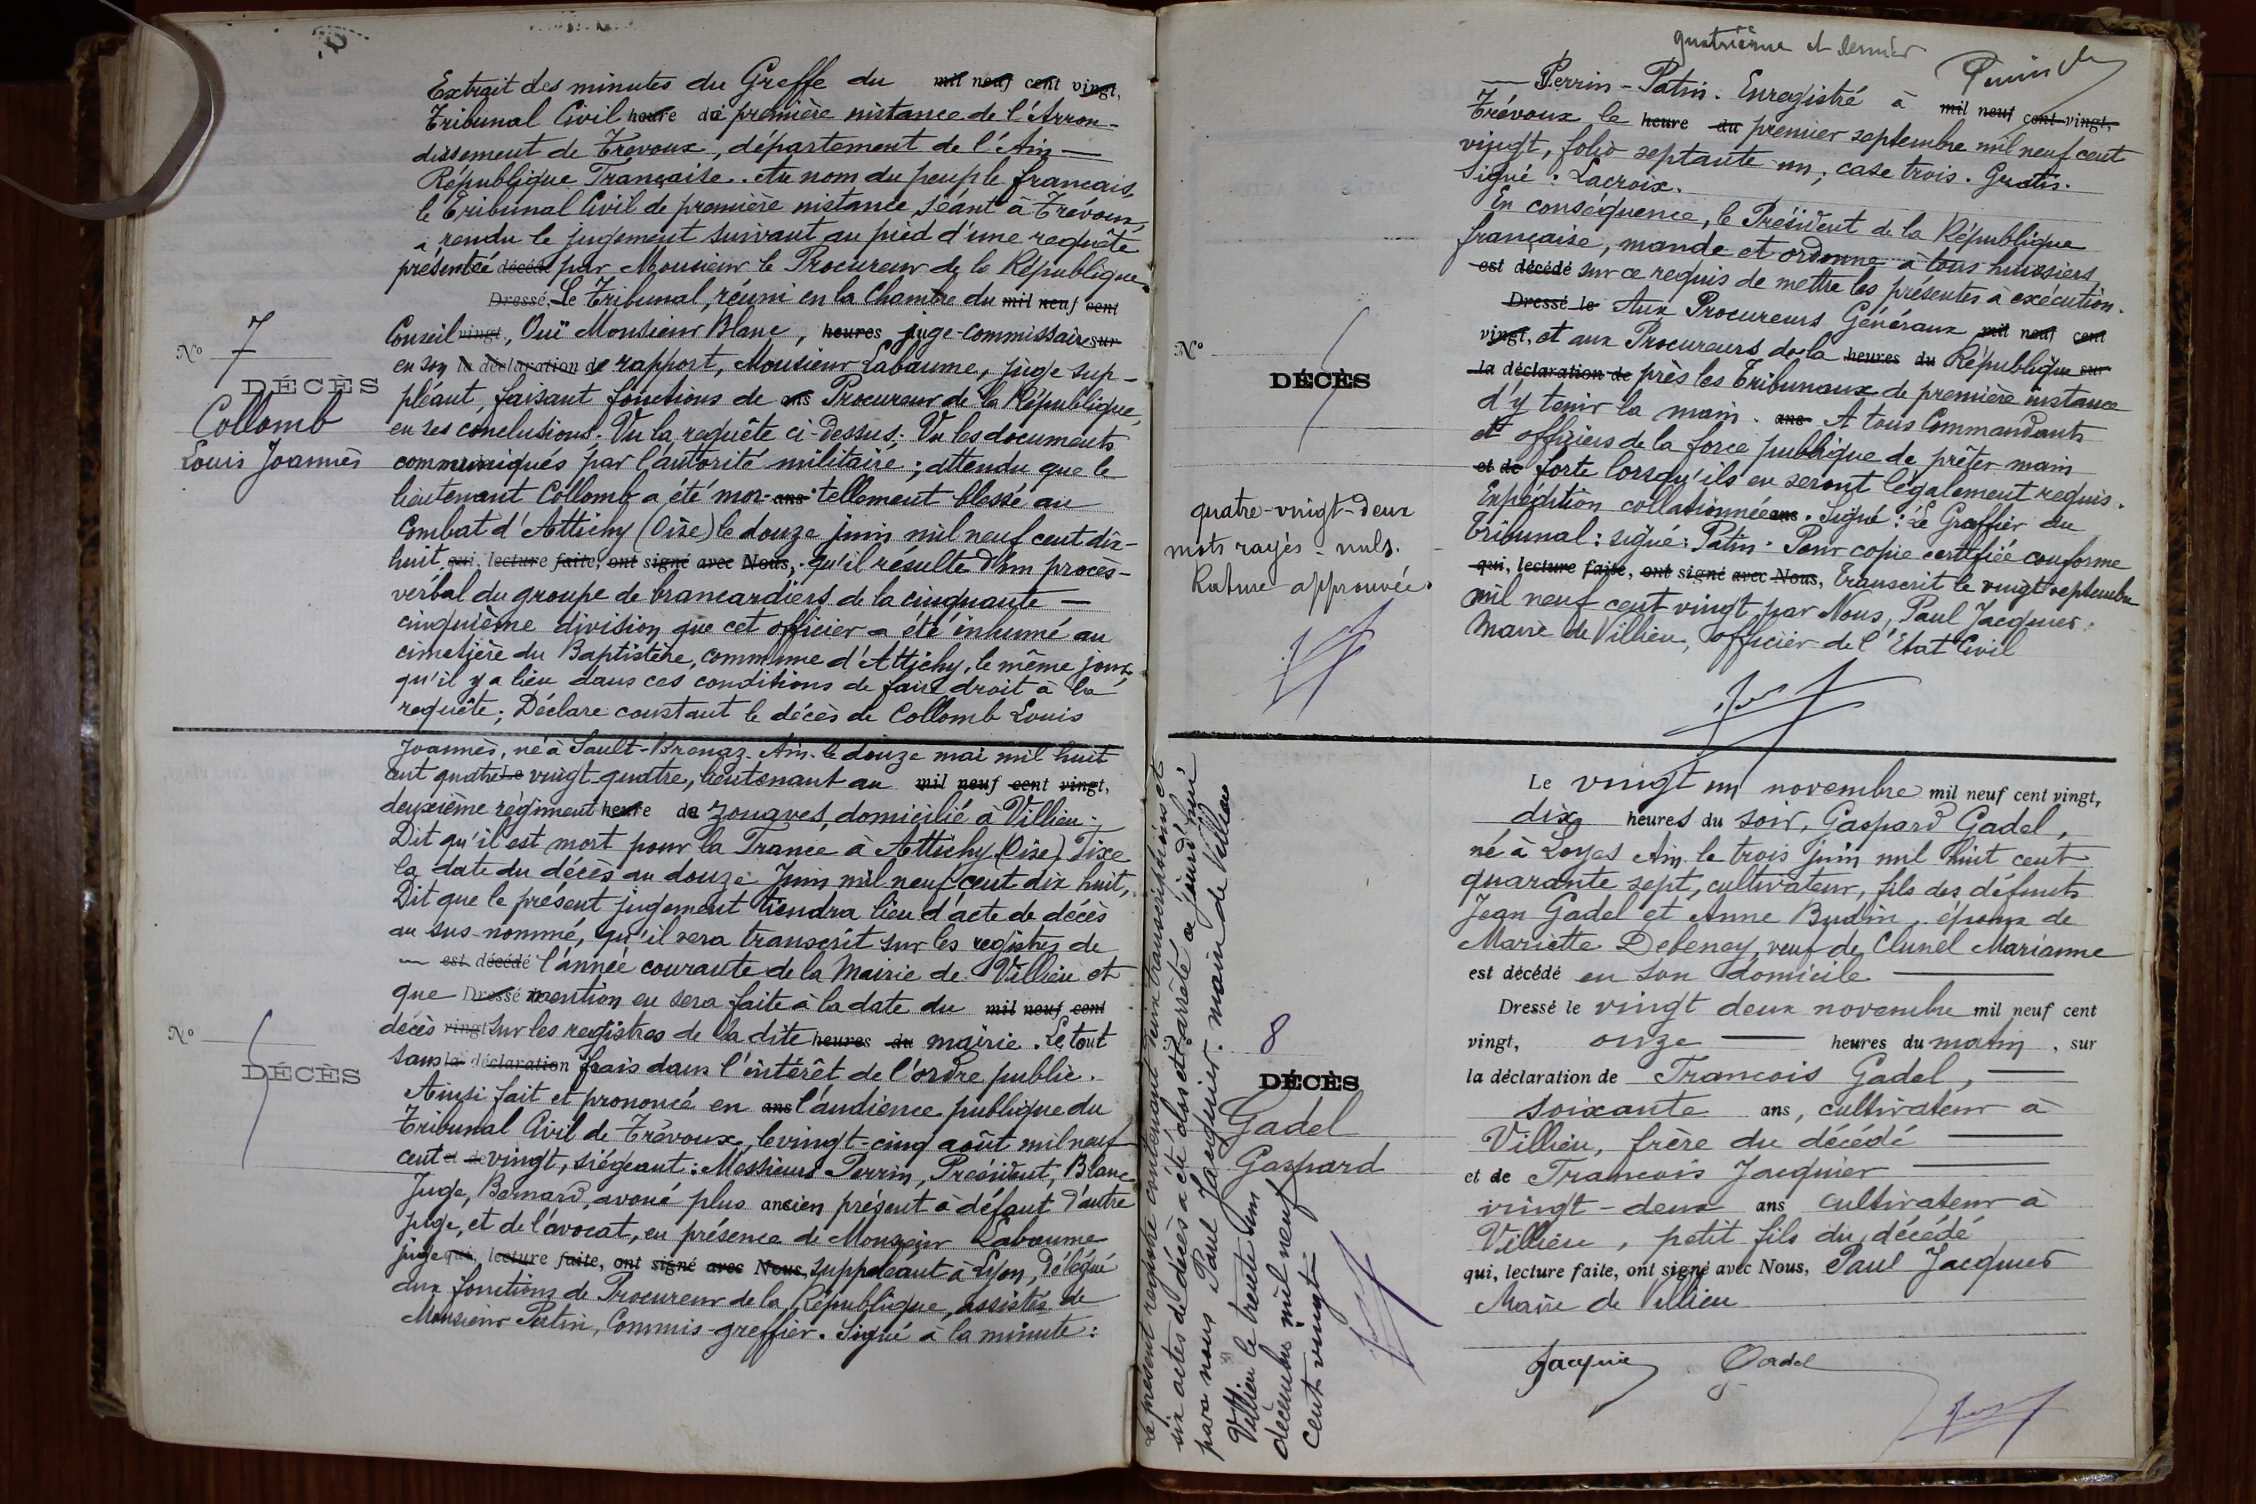 Extrait des minutes du Greffe du mil neuf cent vingt,
Tribunal Civil heure du de première instance de l'Arron-
dissement de Trévoux, département de l'Ain —
République Française. Au nom du peuple français,
le Tribunal Civil de première instance, séant à Trévoux,
a rendu le jugement suivant au pied d'une requête
présentée décédé par Monsieur le Procureur de la République.
Dressé Le Tribunal, réuni en la Chambre du mil neuf cent
Conseil vingt, Ouï Monsieur Blanc, heures juge-commissaire sur
en son la déclaration de rapport, Monsieur Labaume, juge sup-
pléant, faisant fonctions de ans Procureur de la République,
en ses conclusions. Vu la requête ci-dessus. Vu les documents
communiqués par l'autorité militaire ; attendu que le
lieutenant Collomb a été mor- ans tellement blessé au
Combat d'Attichy (Oise) le douze juin mil neuf cent dix-
huit, qui, lecture faite, ont signé avec Nous, qu'il résulte d'un procès-
verbal du groupe de brancardiers de la cinquante —
cinquième division que cet officier a été inhumé au
cimetière du Baptistère, commune d'Attichy, le même jour,
qu'il y a lieu dans ces conditions de faire droit à la
requête ; Déclare constant le décès de Collomb Louis
N° 7
DÉCÈS
Collomb
Louis Joannès
Joannès, né à Sault-Brenaz. Ain. le douze mai mil huit
cent quatre Le vingt-quatre, lieutenant au mil neuf cent vingt,
deuxième régiment heure de zouaves, domicilié à Villieu.
Dit qu'il est mort pour la France à Attichy (Oise) Fixe
la date du décès au douze Juin mil neuf cent dix huit,
Dit que le présent jugement tiendra lieu d'acte de décès
au sus-nommé, qu'il sera transcrit sur les registres de
— est décédé l'année courante de la Mairie de Villieu et
que Dressé le mention en sera faite à la date du mil neuf cent
décès vingt sur les registres de la dite heures du mairie. Le tout
sans la déclaration frais dans l'intérêt de l'ordre public.
Ainsi fait et prononcé en ans l'audience publique du
Tribunal Civil de Trévoux, le vingt-cinq août mil neuf
cent et de vingt, siégeant : Messieurs Perrin, Président, Blanc
Juge, Bernard, avoué plus ancien présent à défaut d'autre
juge, et de l'avocat, en présence de Monsieur Labaume
juge qui, lecture faite, ont signé avec Nous, suppléant à Lyon, délégué
aux fonctions de Procureur de la République, assistés de
Monsieur Patin, Commis-greffier. Signé à la minute :
N°
DÉCÈS
quatrième et dernier
— Perrin - Patin. Enregistré à mil neuf cent vingt,
Trévoux le heure du premier septembre mil neuf cent
vingt, folio septante-un, case trois. Gratis.
Signé : Lacroix.
En conséquence, le Président de la République
française, mande et ordonne à tous huissiers,
est décédé sur ce requis de mettre les présentes à exécution.
Dressé le Aux Procureurs Généraux mil neuf cent
vingt, et aux Procureurs de la heures du République sur
la déclaration de près les Tribunaux de première instance
d'y tenir la main. ans A tous Commandants
et officiers de la force publique de prêter main
et de forte lorsqu'ils en seront légalement requis.
Expédition collationnée ans. Signé : Le Greffier du
Tribunal : signé : Patin. Pour copie certifiée conforme
qui, lecture faite, ont signé avec Nous, Transcrit le vingt septembre
mil neuf cent vingt par Nous, Paul Jacquier,
Maire de Villieu, officier de l'Etat Civil
N°
DÉCÈS
quatre-vingt-deux
mots rayés-nuls.
Rature approuvée.
Le vingt un novembre mil neuf cent vingt,
dix heures du soir, Gaspard Gadel,
né à Loyes Ain le trois juin mil huit cent
quarante sept, cultivateur, fils des défunts
Jean Gadel et Anne Budin, époux de
Mariette Debeney, veuf de Clunel Marianne
est décédé en son domicile —
Dressé le vingt deux novembre mil neuf cent
vingt, onze — heures du matin, sur
la déclaration de Francois Gadel, —
soixante ans, cultivateur à
Villieu, frère du décédé —
et de Francois Jacquier —
vingt-deux ans cultivateur à
Villieu, petit fils du décédé
qui, lecture faite, ont signé avec Nous, Paul Jacquier
Maire de Villieu
Jacquier Gadel
N° 8
DÉCÈS
Gadel
Gaspard
Le présent registre contenant deux transcriptions et
six actes de décès a été clos et arrêté ce jourd'hui
par nous Paul Jacquier. maire de Villieu
Villieu le trente un
décembre mil neuf
cent vingt